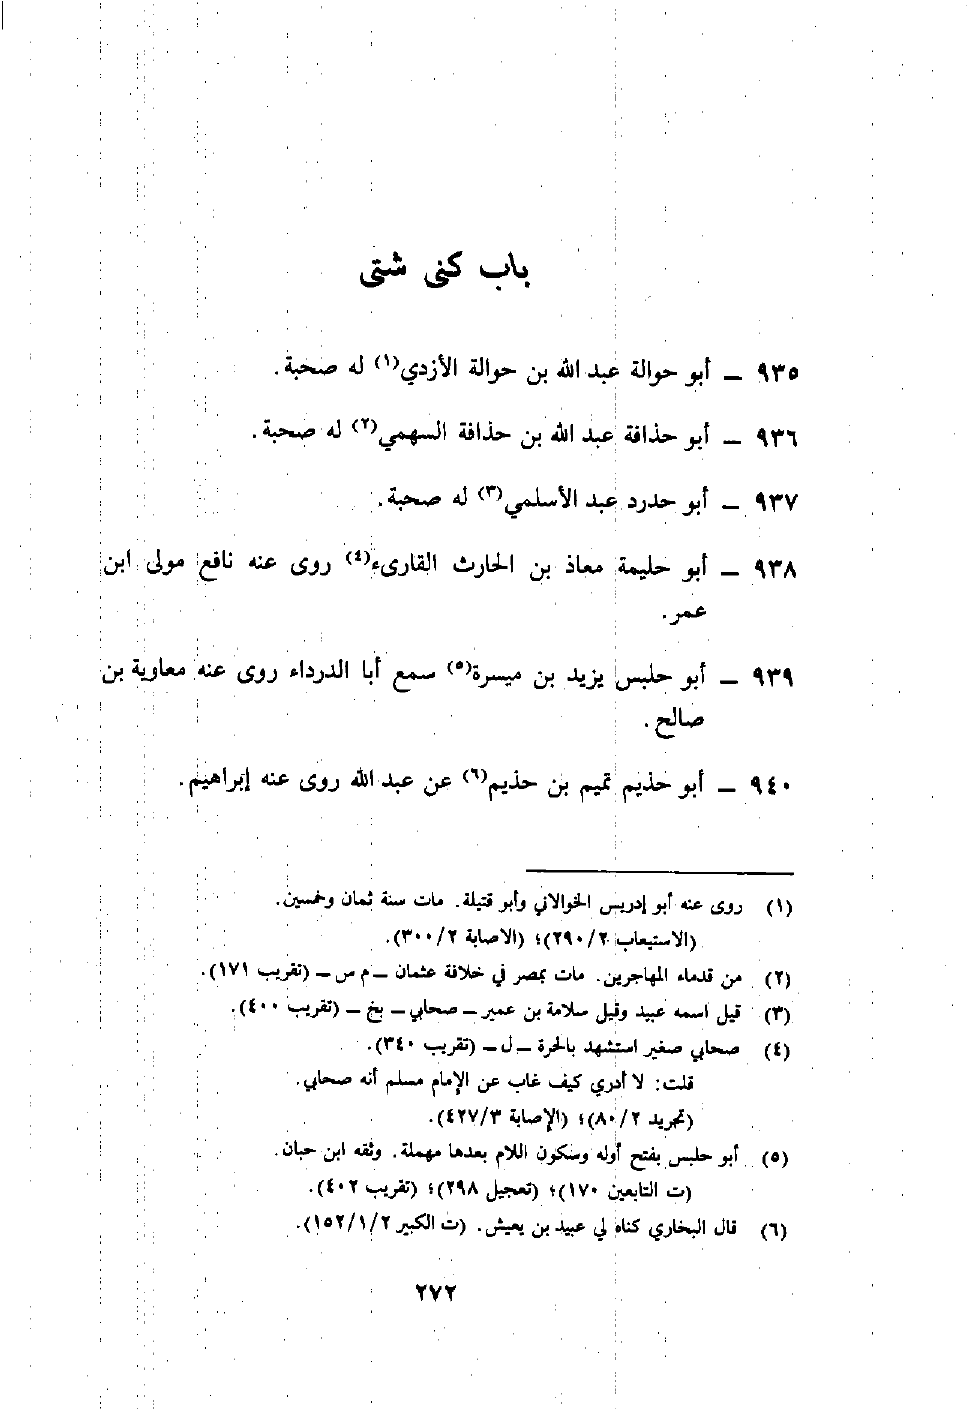 باب كنى شتى
٩٣٥ ـ أبو حوالة عبد الله بن حوالة الأزدي(١) له صحبة.
٩٣٦ ـ أبو حذافة عبد الله بن حذافة السهمي(٢) له صحبة.
٩٣٧ ـ أبو حدرد عبد الأسلمي(٣) له صحبة.
٩٣٨ ـ أبو حليمة معاذ بن الحارث القارىء(٤) روى عنه نافع مولى ابن
عمر.
٩٣٩ ـ أبو حلبس يزيد بن ميسرة(٥) سمع أبا الدرداء روى عنه معاوية بن
صالح.
٩٤٠ ـ أبو حذيم تميم بن حذيم(٦) عن عبد الله روى عنه إبراهيم.
(١) روى عنه أبو إدريس الخولاني وأبو قتيلة. مات سنة ثمان وخمسين.
(الاستيعاب ٢٩٠/٢)؛ (الاصابة ٣٠٠/٢).
(٢) من قدماء المهاجرين. مات بمصر في خلافة عثمان ـ م س ـ (تقريب ١٧١).
(٣) قيل اسمه عبيد وقيل سلامة بن عمير ـ صحابي ـ بخ ـ (تقريب ٤٠٠).
(٤) صحابي صغير استشهد بالحرة ـ ل ـ (تقريب ٣٤٠).
قلت: لا أدري كيف غاب عن الإمام مسلم أنه صحابي.
(تجريد ٨٠/٢)؛ (الإصابة ٤٢٧/٣).
(٥) أبو حلبس بفتح أوله وسكون اللام بعدها مهملة. وثقه ابن حبان.
(ت التابعين ١٧٠)؛ (تعجيل ٢٩٨)؛ (تقريب ٤٠٢).
(٦) قال البخاري كناه لي عبيد بن يعيش. (ت الكبير ١٥٢/١/٢).
٢٧٢